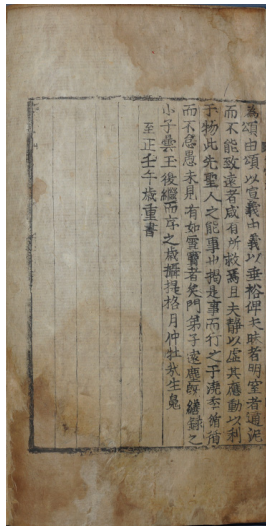 為頌由頌以宣義由義以垂裕俾夫昧者明窒者通泥
而不能致遠者咸有所救焉且夫靜以虛其應動以利
于物此先聖人之能事也揭是事而行之于澆季術陷
而不急愚未見有如雲寶者矣門弟子遠塵等繕錄之
小子曇玉後繼而序之歲攝提格月仲牡哉生魄
至正壬午歲重書